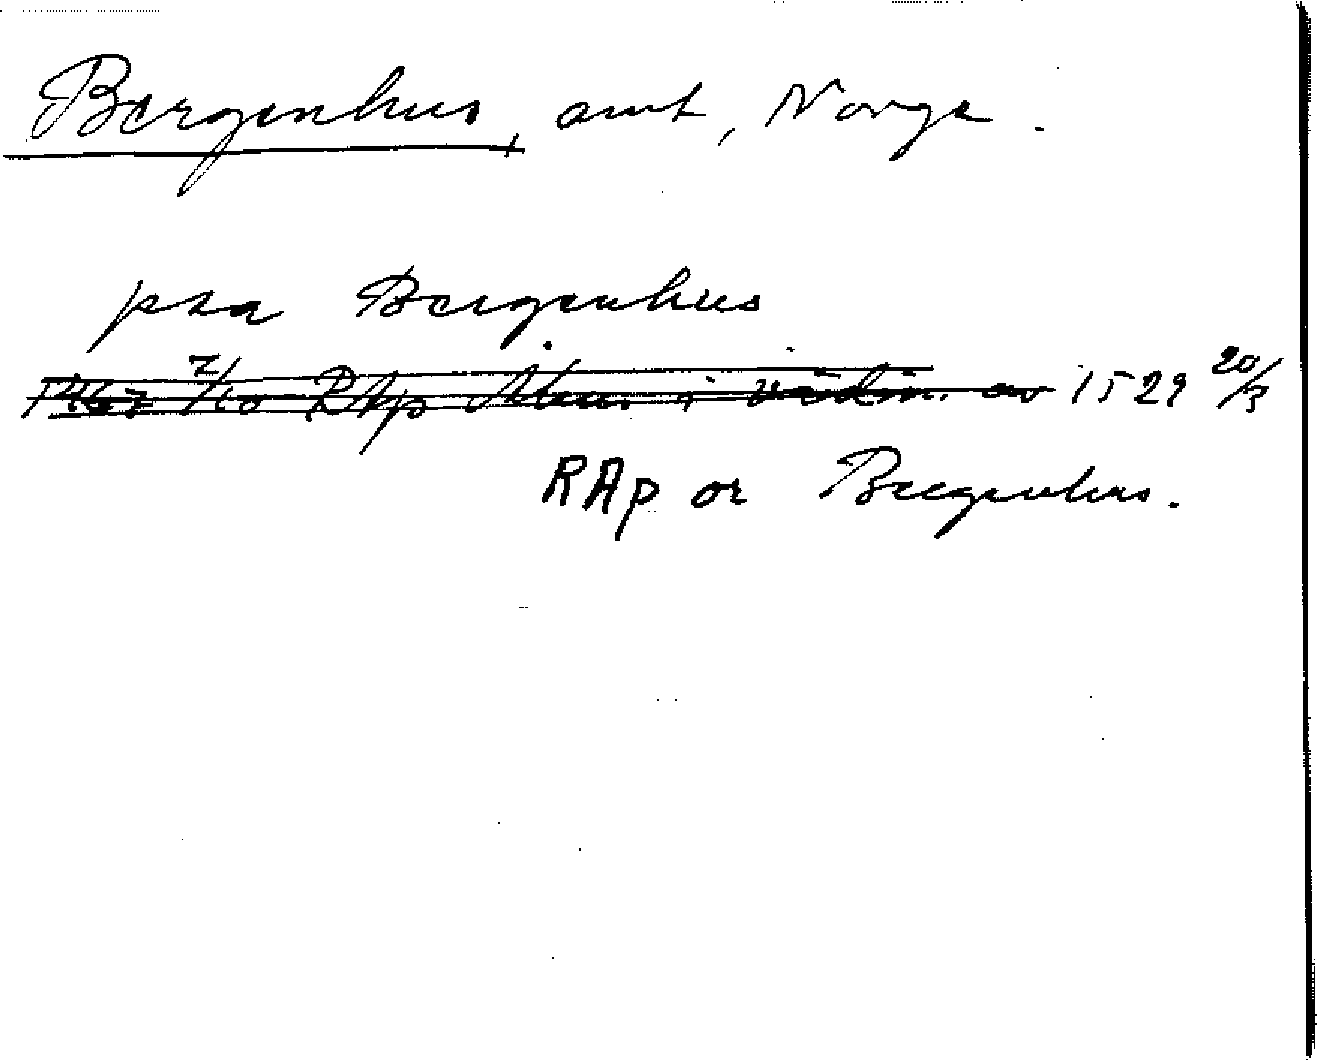 Bergenhus, amt, Norge.
paa Bergenhus
1463 7/10 RAp i vidim. av 1529 20/3
RAp or Bergenhus.